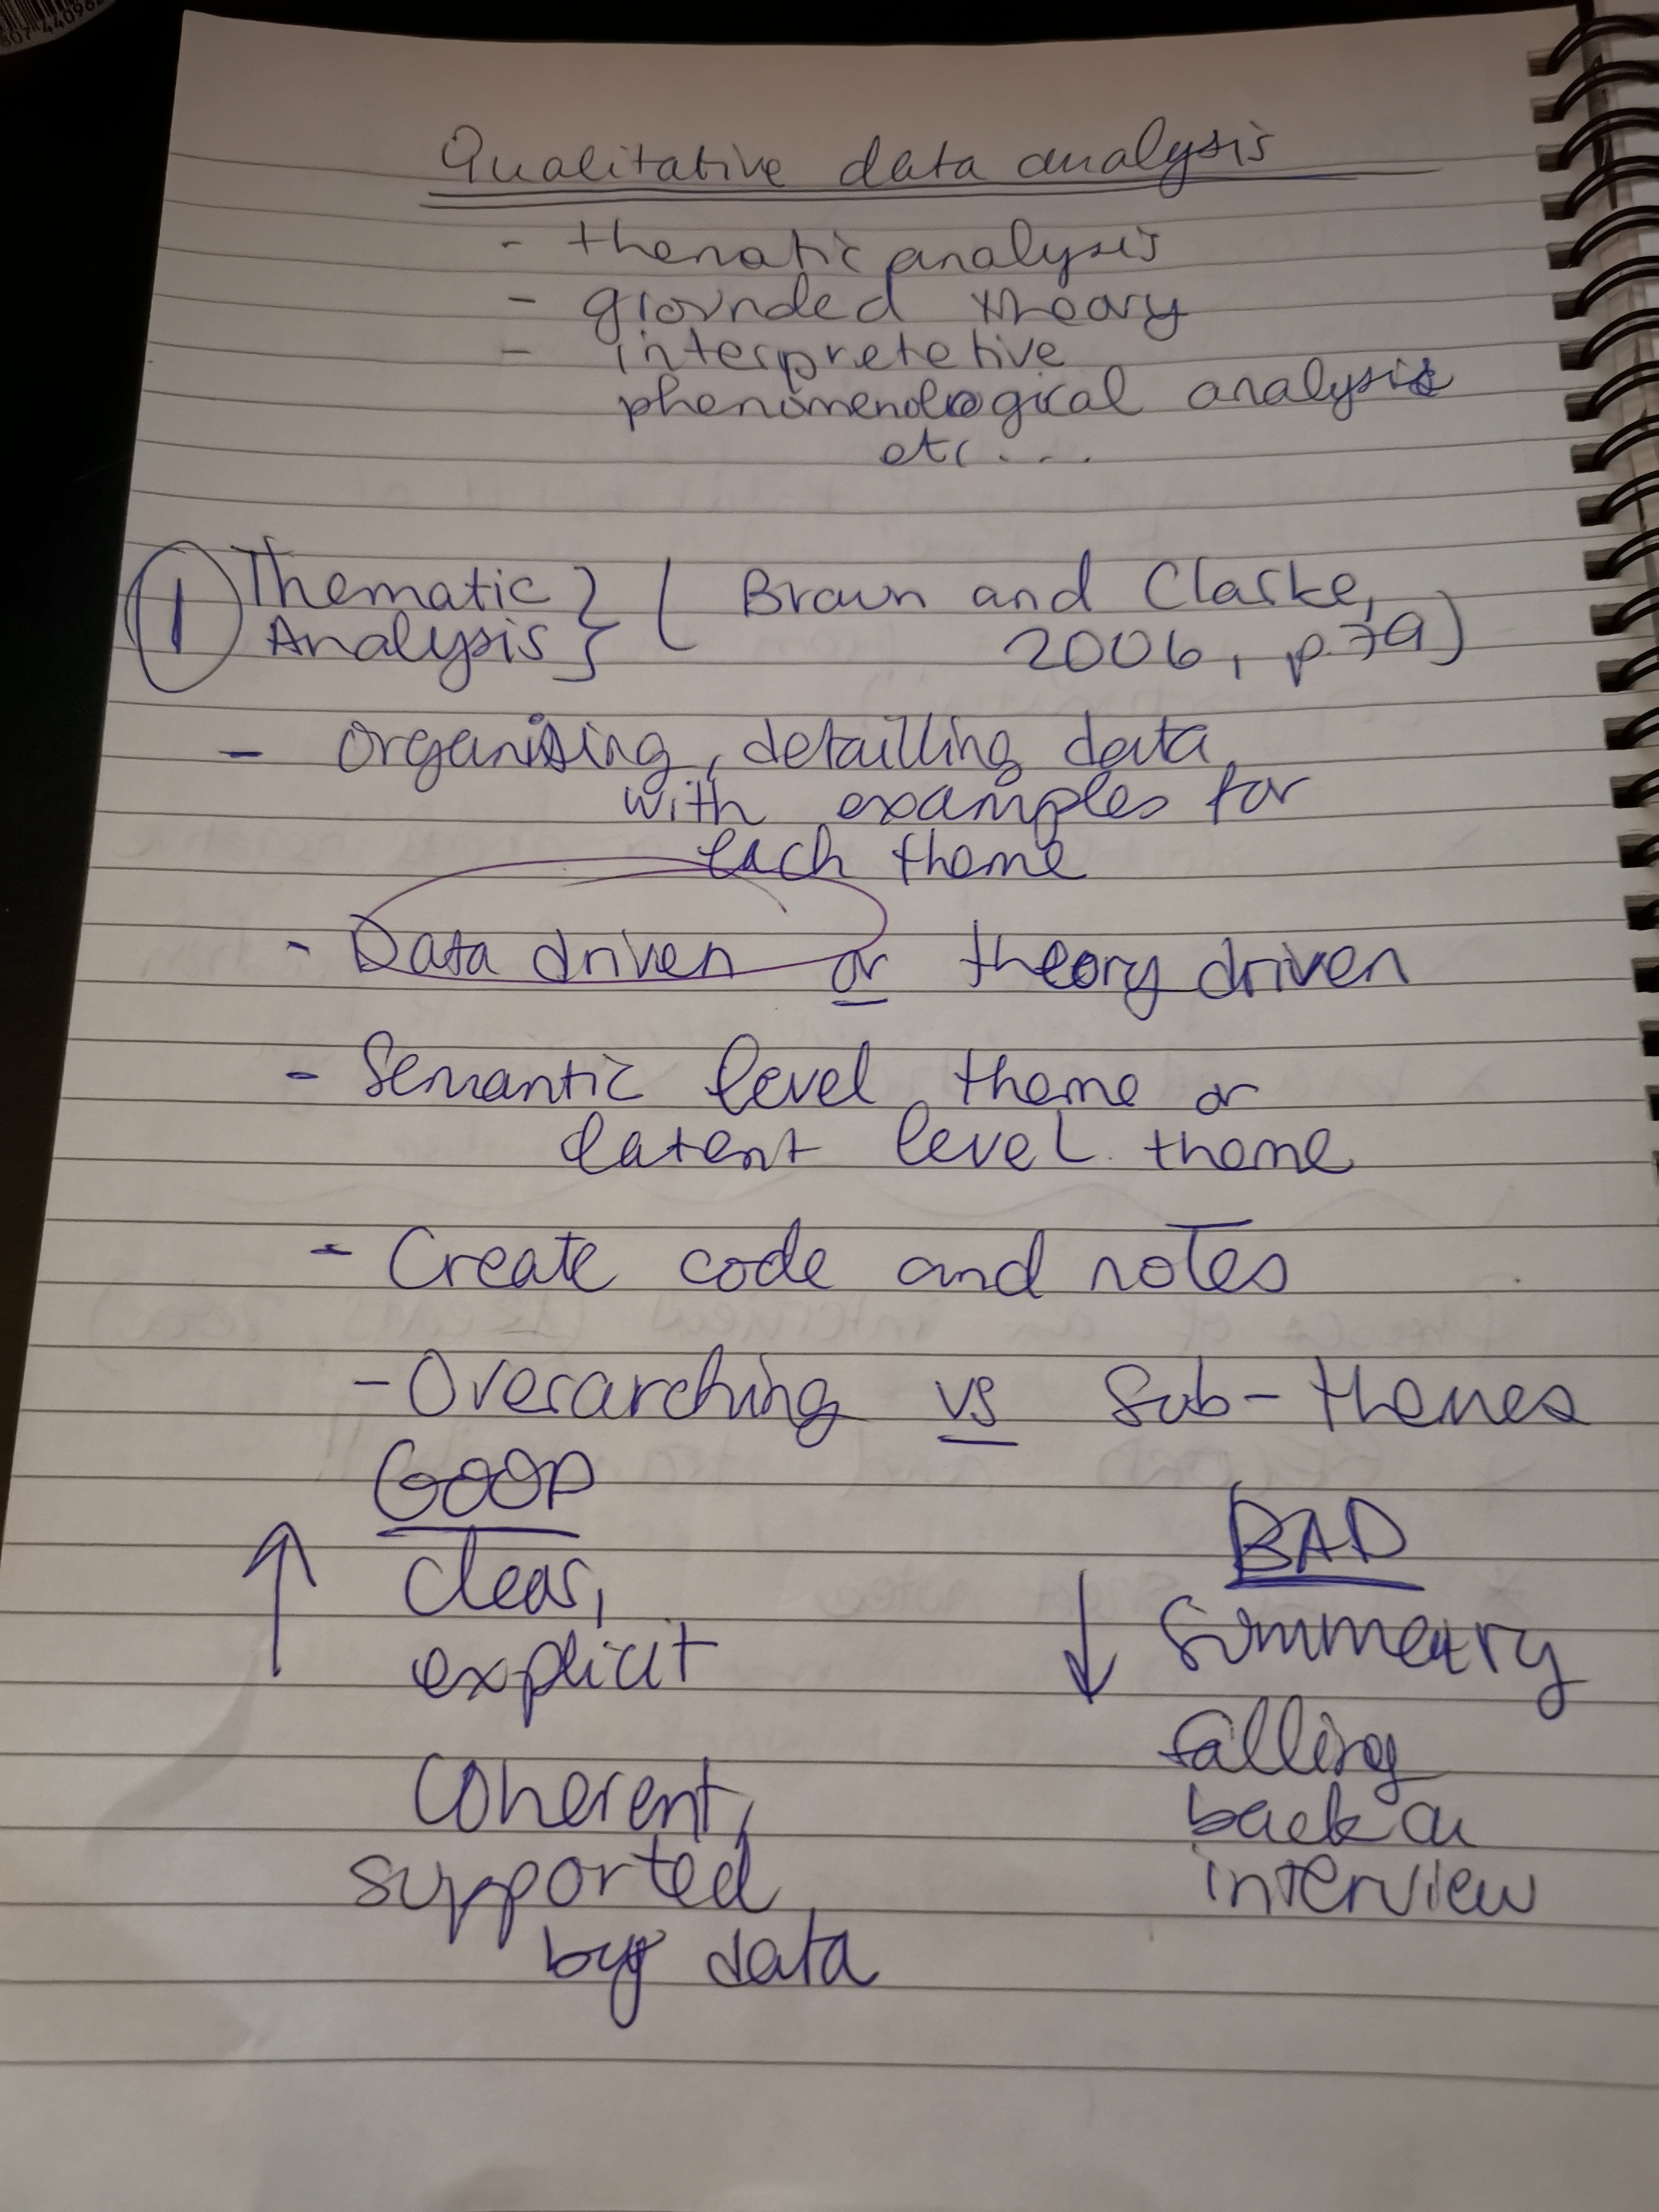 Qualitative data analysis
- thematic analysis
- grounded theory
- interpretetive
phenomenological analysis
etc....
1 Thematic } ( Braun and Clarke,
Analysis } 2006, p.79)
- Organising, detailling data
with examples for
each theme
- Data driven or theory driven
- Semantic level theme or
latent level theme
- Create code and notes
- Overarching vs Sub-themes
GOOD
BAD
↑ clear,
explicit
Coherent,
supported
by data
↓ Summeary
falling
back on
interview